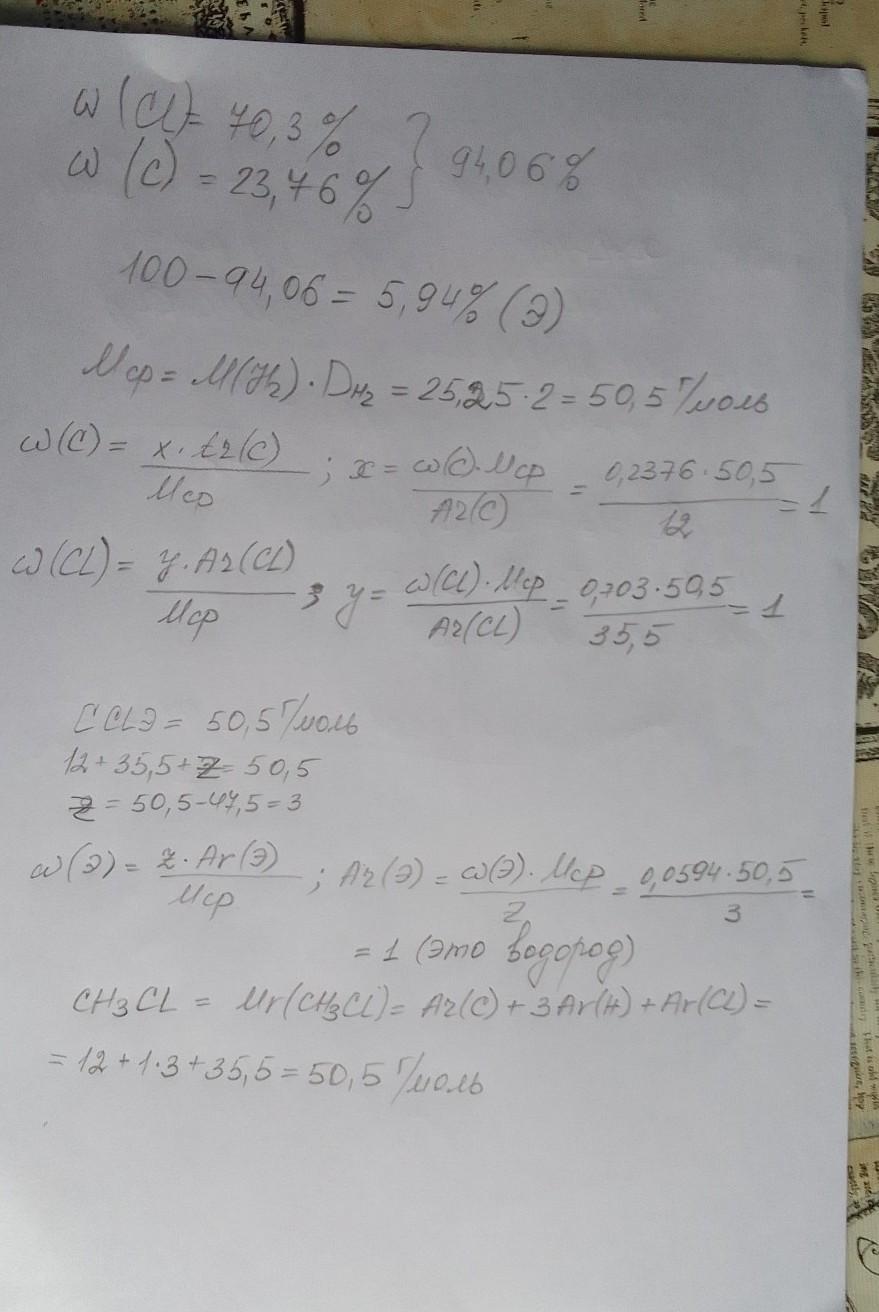 w(Cl)= 70,3%
w(C) = 23,76% } 94,06%
100-94,06 = 5,94% (Э)
Мср = М(H2)·DH2 = 25,25·2 = 50,5 г/моль
w(C) = x·Ar(C)/Мср ; x = w(C)·Мср/Ar(C) = 0,2376·50,5/12 = 1
w(CL) = y·Ar(CL)/Мср ; y = w(CL)·Мср/Ar(CL) = 0,703·50,5/35,5 = 1
CCLЭ = 50,5 г/моль
12+35,5+z = 50,5
z = 50,5-47,5 = 3
w(Э) = z·Ar(Э)/Мср ; Ar(Э) = w(Э)·Мср/z = 0,0594·50,5/3 =
= 1 (это водород)
CH3CL = Mr(CH3Cl) = Ar(C) + 3Ar(H) + Ar(CL) =
= 12 + 1·3 + 35,5 = 50,5 г/моль